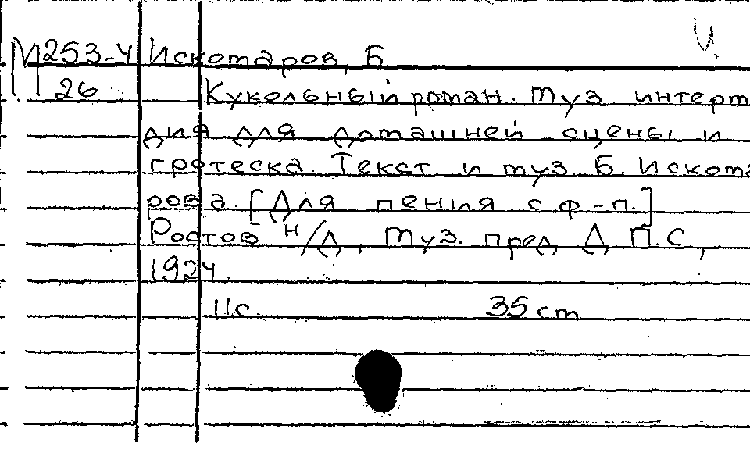 М253-4 Искотаров, Б.
26 Кукольный роман. Муз. интерм
дия для домашней сцены и
гротеска. Текст и муз. Б. Искота
рова. [Для пения с ф-п.]
Ростов н/Д, Муз. пред. Д П.С,
1924.
11с. 35 cm